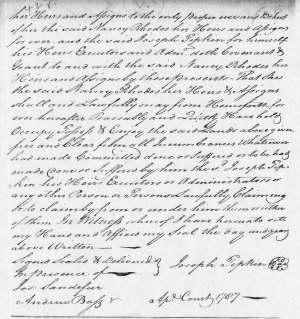 her Heirs and Assigns to the only proper use and Behoof
of her the said Nancy Rhodes her Heirs and Assigns
for ever and the said Joseph Pipkin for himself
his Heirs Executors and Admrs. doth Covenant &
Grant to and with the said Nancy Rhodes her
Heirs and Assigns by these presents That She
the said Nancy Rhodes her Heirs & Assigns
shall and Lawfully may from Henceforth for
ever hereafter Peaceably and Quietly Have hold
Occupy Possess & Enjoy the said Lands above given
free and Clear from all Incumbrances Whatsoever
had made Committed done or Suffered or to be had
made done or Suffered by him the sd. Joseph Pip-
kin his Heirs Executors or Administrators or
any other Person or Persons Lawfully Claiming
or to claim by from or under him them or either
of them In Witness whereof I have hereunto set
my Hand and Affixed my Seal the day and year
above Written —
Signed Sealed & Delivered
In presence of —
Joseph Pipkin
Jos. Sandefur
Andrew Bass
Apl. Court 1787 —